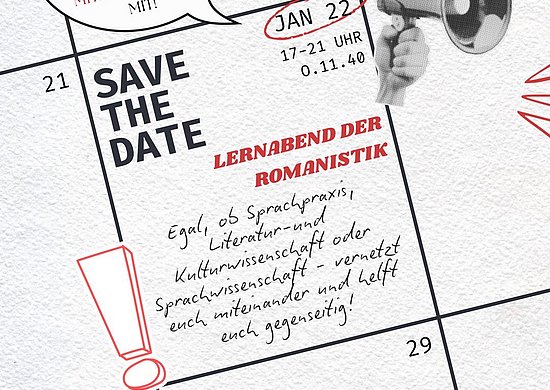 MIT!
JAN 22
17-21 UHR
0.11.40
21
SAVE
THE
DATE
LERNABEND DER
ROMANISTIK
Egal, ob Sprachpraxis,
Literatur-und
Kulturwissenschaft oder
Sprachwissenschaft - vernetzt
euch miteinander und helft
euch gegenseitig!
29